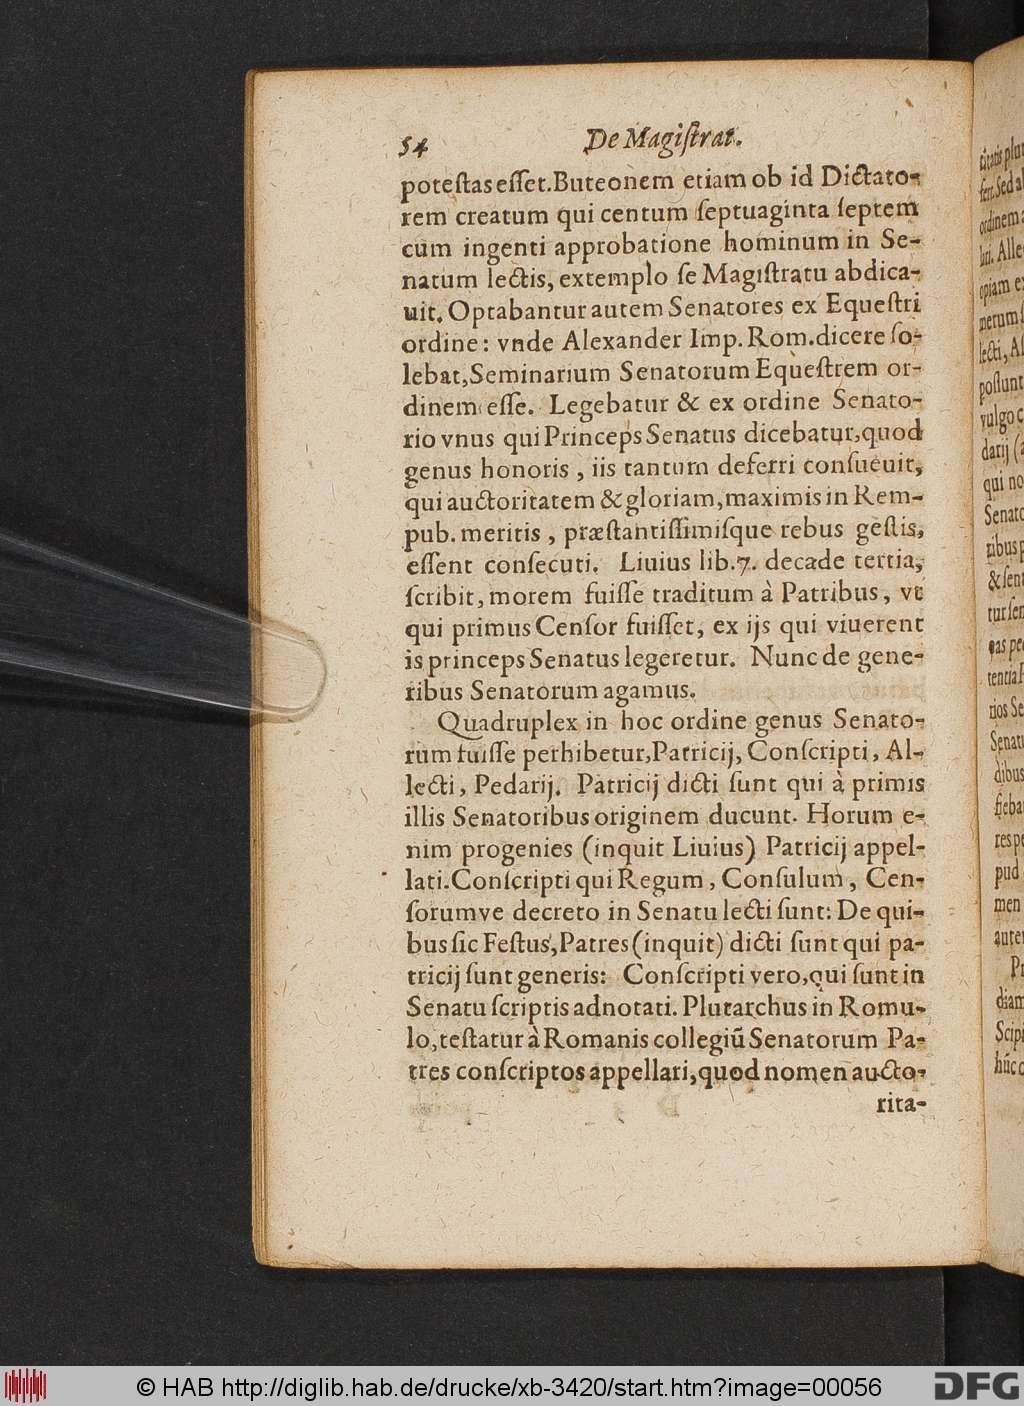 54 De Magiſtrat.
poteſtas eſſet. Buteonem etiam ob id Dictato-
rem creatum qui centum ſeptuaginta ſeptem
cum ingenti approbatione hominum in Se-
natum lectis, extemplo ſe Magiſtratu abdica-
uit. Optabantur autem Senatores ex Equeſtri
ordine: vnde Alexander Imp. Rom. dicere ſo-
lebat, Seminarium Senatorum Equeſtrem or-
dinem eſſe. Legebatur & ex ordine Senato-
rio vnus qui Princeps Senatus dicebatur, quod
genus honoris, iis tantum deferri conſueuit,
qui auctoritatem & gloriam, maximis in Rem-
pub. meritis, præſtantiſſimiſque rebus geſtis,
eſſent conſecuti. Liuius lib. 7. decade tertia,
ſcribit, morem fuiſſe traditum à Patribus, vt
qui primus Cenſor fuiſſet, ex ijs qui viuerent
is princeps Senatus legeretur. Nunc de gene-
ribus Senatorum agamus.
Quadruplex in hoc ordine genus Senato-
rum fuiſſe perhibetur, Patricij, Conſcripti, Al-
lecti, Pedarij. Patricij dicti ſunt qui à primis
illis Senatoribus originem ducunt. Horum e-
nim progenies (inquit Liuius) Patricij appel-
lati. Conſcripti qui Regum, Conſulum, Cen-
ſorumve decreto in Senatu lecti ſunt: De qui-
bus ſic Feſtus, Patres (inquit) dicti ſunt qui pa-
tricij ſunt generis: Conſcripti vero, qui ſunt in
Senatu ſcriptis adnotati. Plutarchus in Romu-
lo, teſtatur à Romanis collegiū Senatorum Pa-
tres conſcriptos appellari, quod nomen aucto-
rita-
ordinem
opiam
lecti,
poſſunt
vulgo
darij
qui no
Senato
Senatu
dibus
pud
men
Scipi
© HAB http://diglib.hab.de/drucke/xb-3420/start.htm?image=00056
DFG